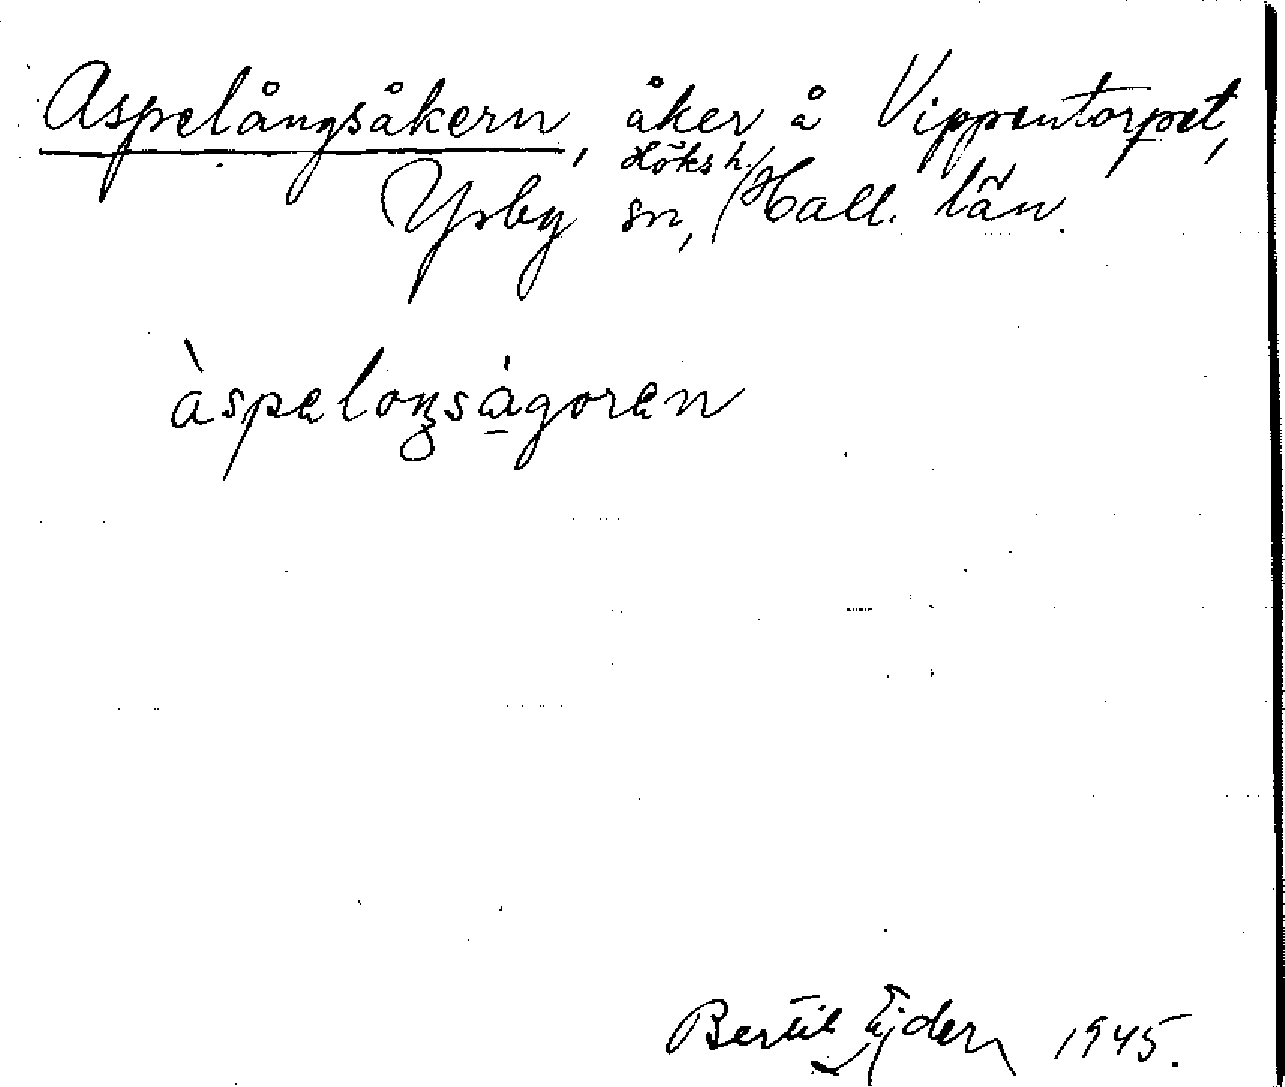 Aspelångsåkern, åker å Vippentorpet,
Ysby sn, Höks h./Hall. län.
àspeloŋságoren
Bertil Ejder 1945.